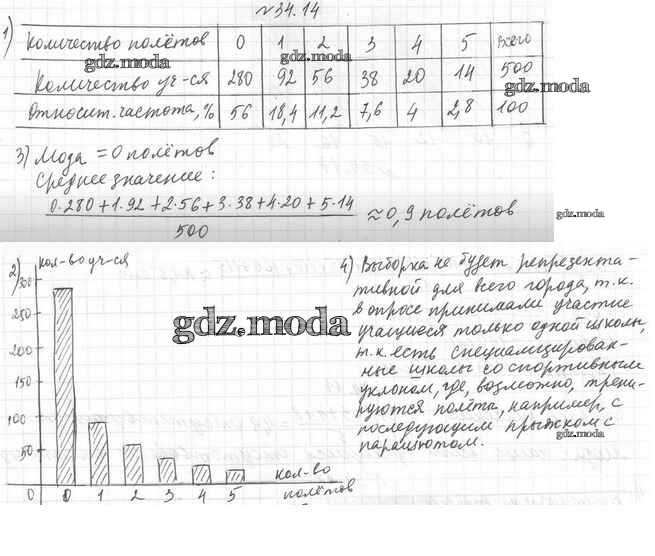 №34.14
1)
Количество полётов 0 1 2 3 4 5 Всего
gdz.moda
Количество уч-ся 280 92 56 38 20 14 500
gdz.moda
Относит. частота, % 56 18,4 11,2 7,6 4 2,8 100
3) Мода = 0 полётов
Среднее значение:
0·280+1·92+2·56+3·38+4·20+5·14
500
≈0,9 полётов
gdz.moda
2) кол-во уч-ся
300
250
200
150
100
50
0
0 1 2 3 4 5
кол-во
полётов
gdz.moda
4) Выборка не будет репрезента-
тивной для всего города, т.к.
в опросе принимали участие
учащиеся только одной школы,
т.к. есть специализирован-
ные школы со спортивным
уклоном, где, возможно, трени-
руются полёта, например, с
последующим прыжком с
парашютом.
gdz.moda